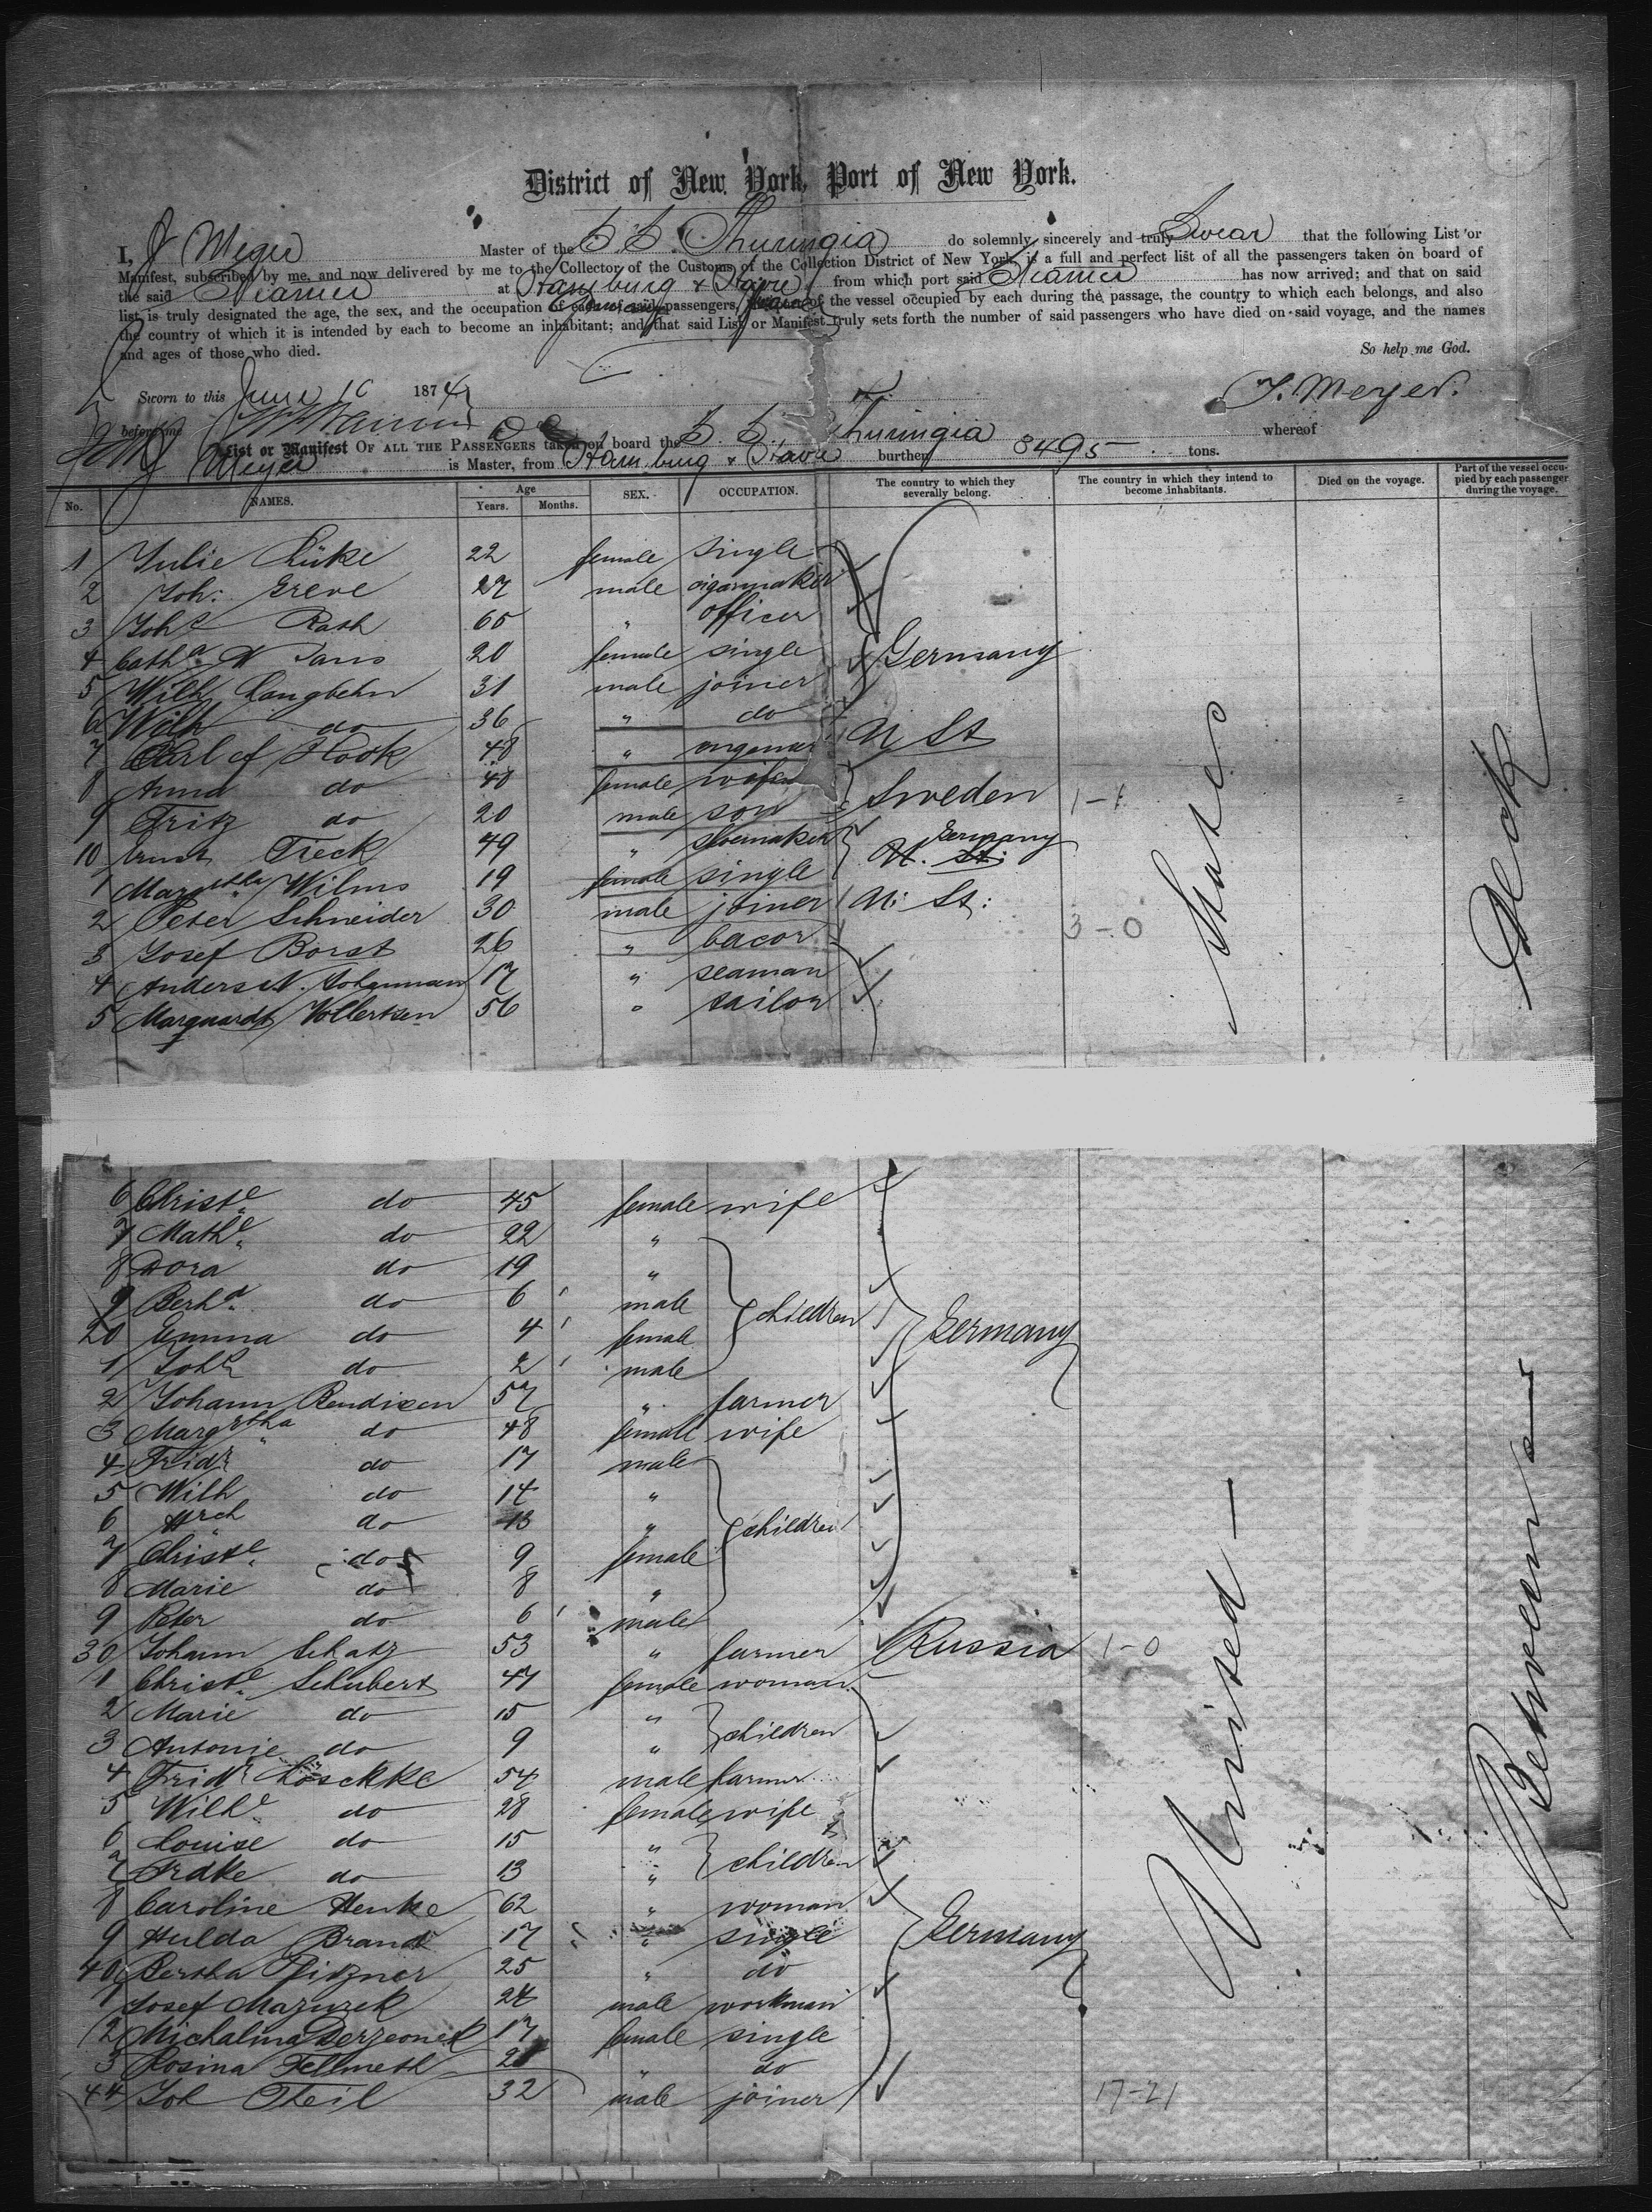 District of New York, Port of New York.
I, J Meyer Master of the S. S. Thuringia do solemnly, sincerely and truly Swear that the following List or
Manifest, subscribed by me, and now delivered by me to the Collector of the Customs of the Collection District of New York, is a full and perfect list of all the passengers taken on board of
the said Steamer at Hamburg & Havre from which port said Steamer has now arrived; and that on said
list is truly designated the age, the sex, and the occupation of each of said passengers, the part of the vessel occupied by each during the passage, the country to which each belongs, and also
the country of which it is intended by each to become an inhabitant; and that said List or Manifest truly sets forth the number of said passengers who have died on said voyage, and the names
and ages of those who died.
So help me God.
Sworn to this June 16 1874
J. Meyer.
before me
List or Manifest OF ALL THE PASSENGERS taken on board the S. S. Thuringia whereof
J Meyer is Master, from Hamburg & Havre burthen 3495 tons.
No. NAMES. Age Years. Months. SEX. OCCUPATION. The country to which they severally belong. The country in which they intend to become inhabitants. Died on the voyage. Part of the vessel occupied by each passenger during the voyage.
1 Julie Lüke 22 female single
2 Joh: Greve 27 male cigarmaker
3 Joh Rash 65 " officer
4 Cath a 20 female single Germany
5 Wilh Langbehn 31 male joiner
6 Wilh do 36 " do U St
7 Carl af Hook 48 "
8 Anna do 40 female wife Sweden 1-1
9 Fritz do 20 male son
10 Ernst Fieck 49 " shoemaker Germany U. St:
1 Margretha Wilms 19 female single
2 Peter Schneider 30 male joiner U: St:
3 Josef Borst 26 " bacor 3-0
4 Anders N. Johannsen 17 " seaman
5 Marquardt Vollertsen 56 " tailor
States
Deck
6 Christe do 45 female wife
7 Mathe do 22 "
8 Dora do 19 "
9 Berhd do 6 male children
20 Emma do 4 female Germany
1 Joh do 2 male
2 Johann Bendixen 57 " farmer
3 Margretha do 48 female wife
4 Fridr do 17 male
5 Wilh do 14 "
6 Hrch do 13 " children
7 Christe do 9 female
8 Marie do 8 "
9 Peter do 6 male
30 Johann Schatz 53 " farmer Russia 1-0
1 Christe Schubert 47 female woman
2 Marie do 15 " children
3 Antonie do 9 "
4 Fridr Löschke 54 male farmer
5 Wilhe do 28 female wife
6 Louise do 15 " children
7 Frdke do 13 "
8 Caroline Henke 62 " woman
9 Hulda Brandt 17 " single Germany
40 Bertha Fitzner 25 " do
1 Josef Mazurek 24 male workman
2 Michalina 17 female single
3 Rosina Fellmeth " do
44 Joh Theil 32 male joiner 17-21
United
Between